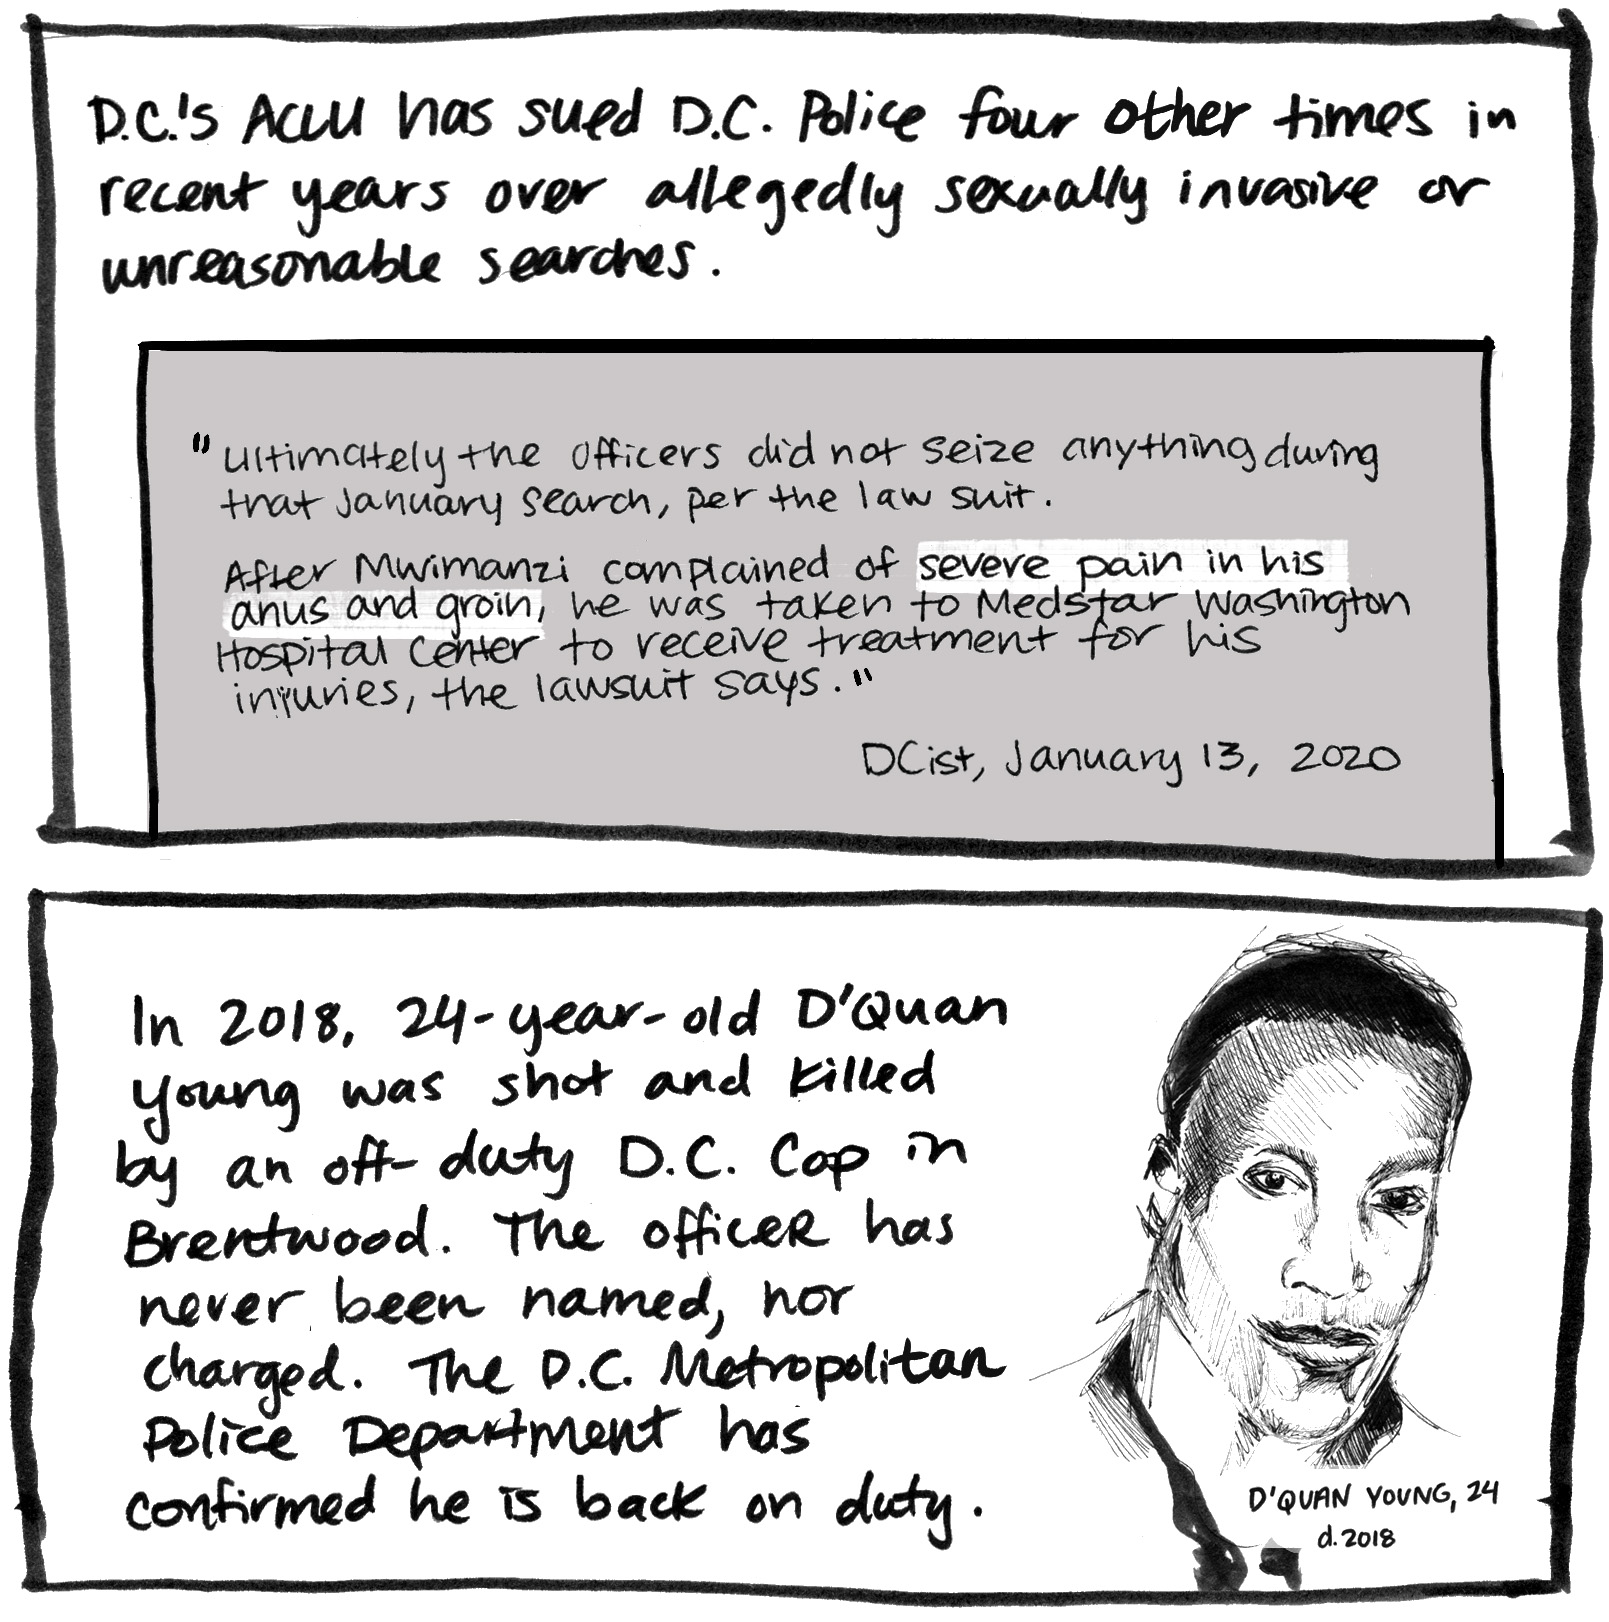 D.C.'s ACLU has sued D.C. Police four other times in
recent years over allegedly sexually invasive or
unreasonable searches.
"Ultimately the officers did not seize anything during
that January search, per the law suit.
After Mwimanzi complained of severe pain in his
anus and groin, he was taken to Medstar Washington
Hospital Center to receive treatment for his
injuries, the lawsuit says."
DCist, January 13, 2020
In 2018, 24-year-old D'Quan
Young was shot and killed
by an off-duty D.C. Cop in
Brentwood. The officer has
never been named, nor
charged. The D.C. Metropolitan
Police Department has
confirmed he is back on duty.
D'QUAN YOUNG, 24
d. 2018